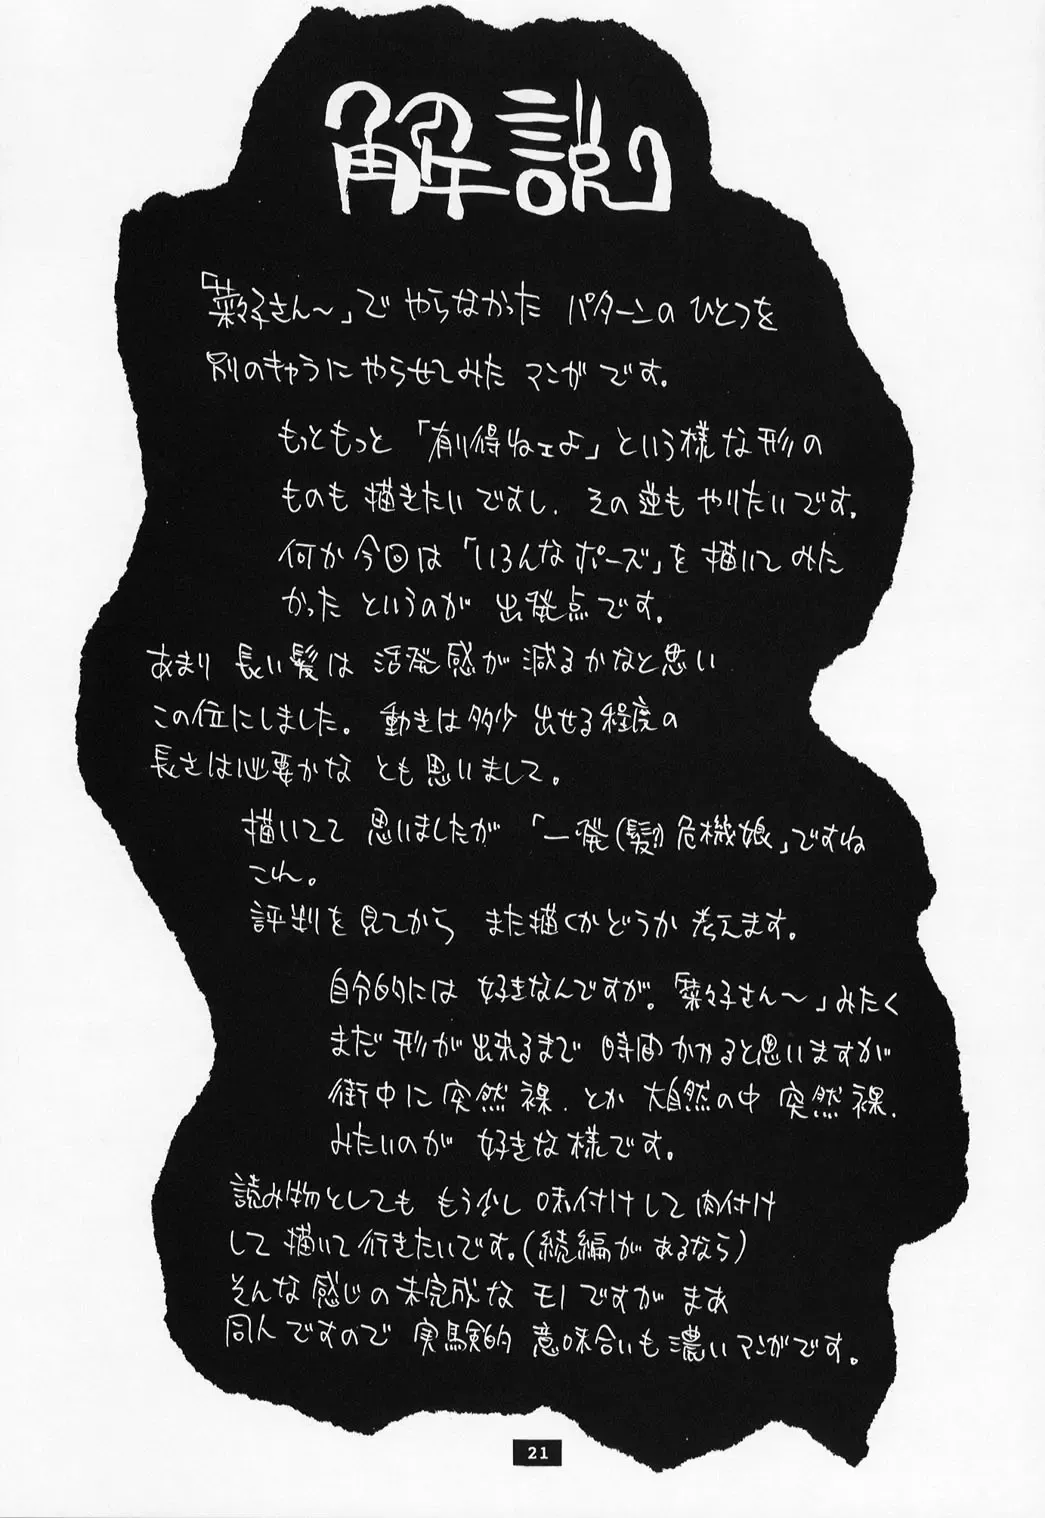 解説
「菜々子さん～」で やらなかった パターンの ひとつを
別のキャラに やらせてみた マンガです。
もっともっと 「有り得ねェよ」という様な形の
ものも 描きたいですし、その逆も やりたいです。
何か今回は「いろんなポーズ」を 描いてみた
かった というのが 出発点です。
あまり 長い髪は 活発感が 減るかなと思い
この位にしました。 動きは多少 出せる程度の
長さは必要かな とも思いまして。
描いてて 思いましたが 「一発(髪)危機娘」ですね
これ。
評判を見てから また描くかどうか 考えます。
自分的には 好きなんですが。「菜々子さん～」みたく
まだ 形が出来るまで 時間かかると思いますが
街中に 突然裸、とか 大自然の中 突然裸、
みたいのが 好きな様です。
読み物としても もう少し 味付けして 肉付け
して 描いて行きたいです。(続編が あるなら)
そんな感じの 未完成な モノですが まあ
同人ですので 実験的 意味合いも濃いマンガです。
21